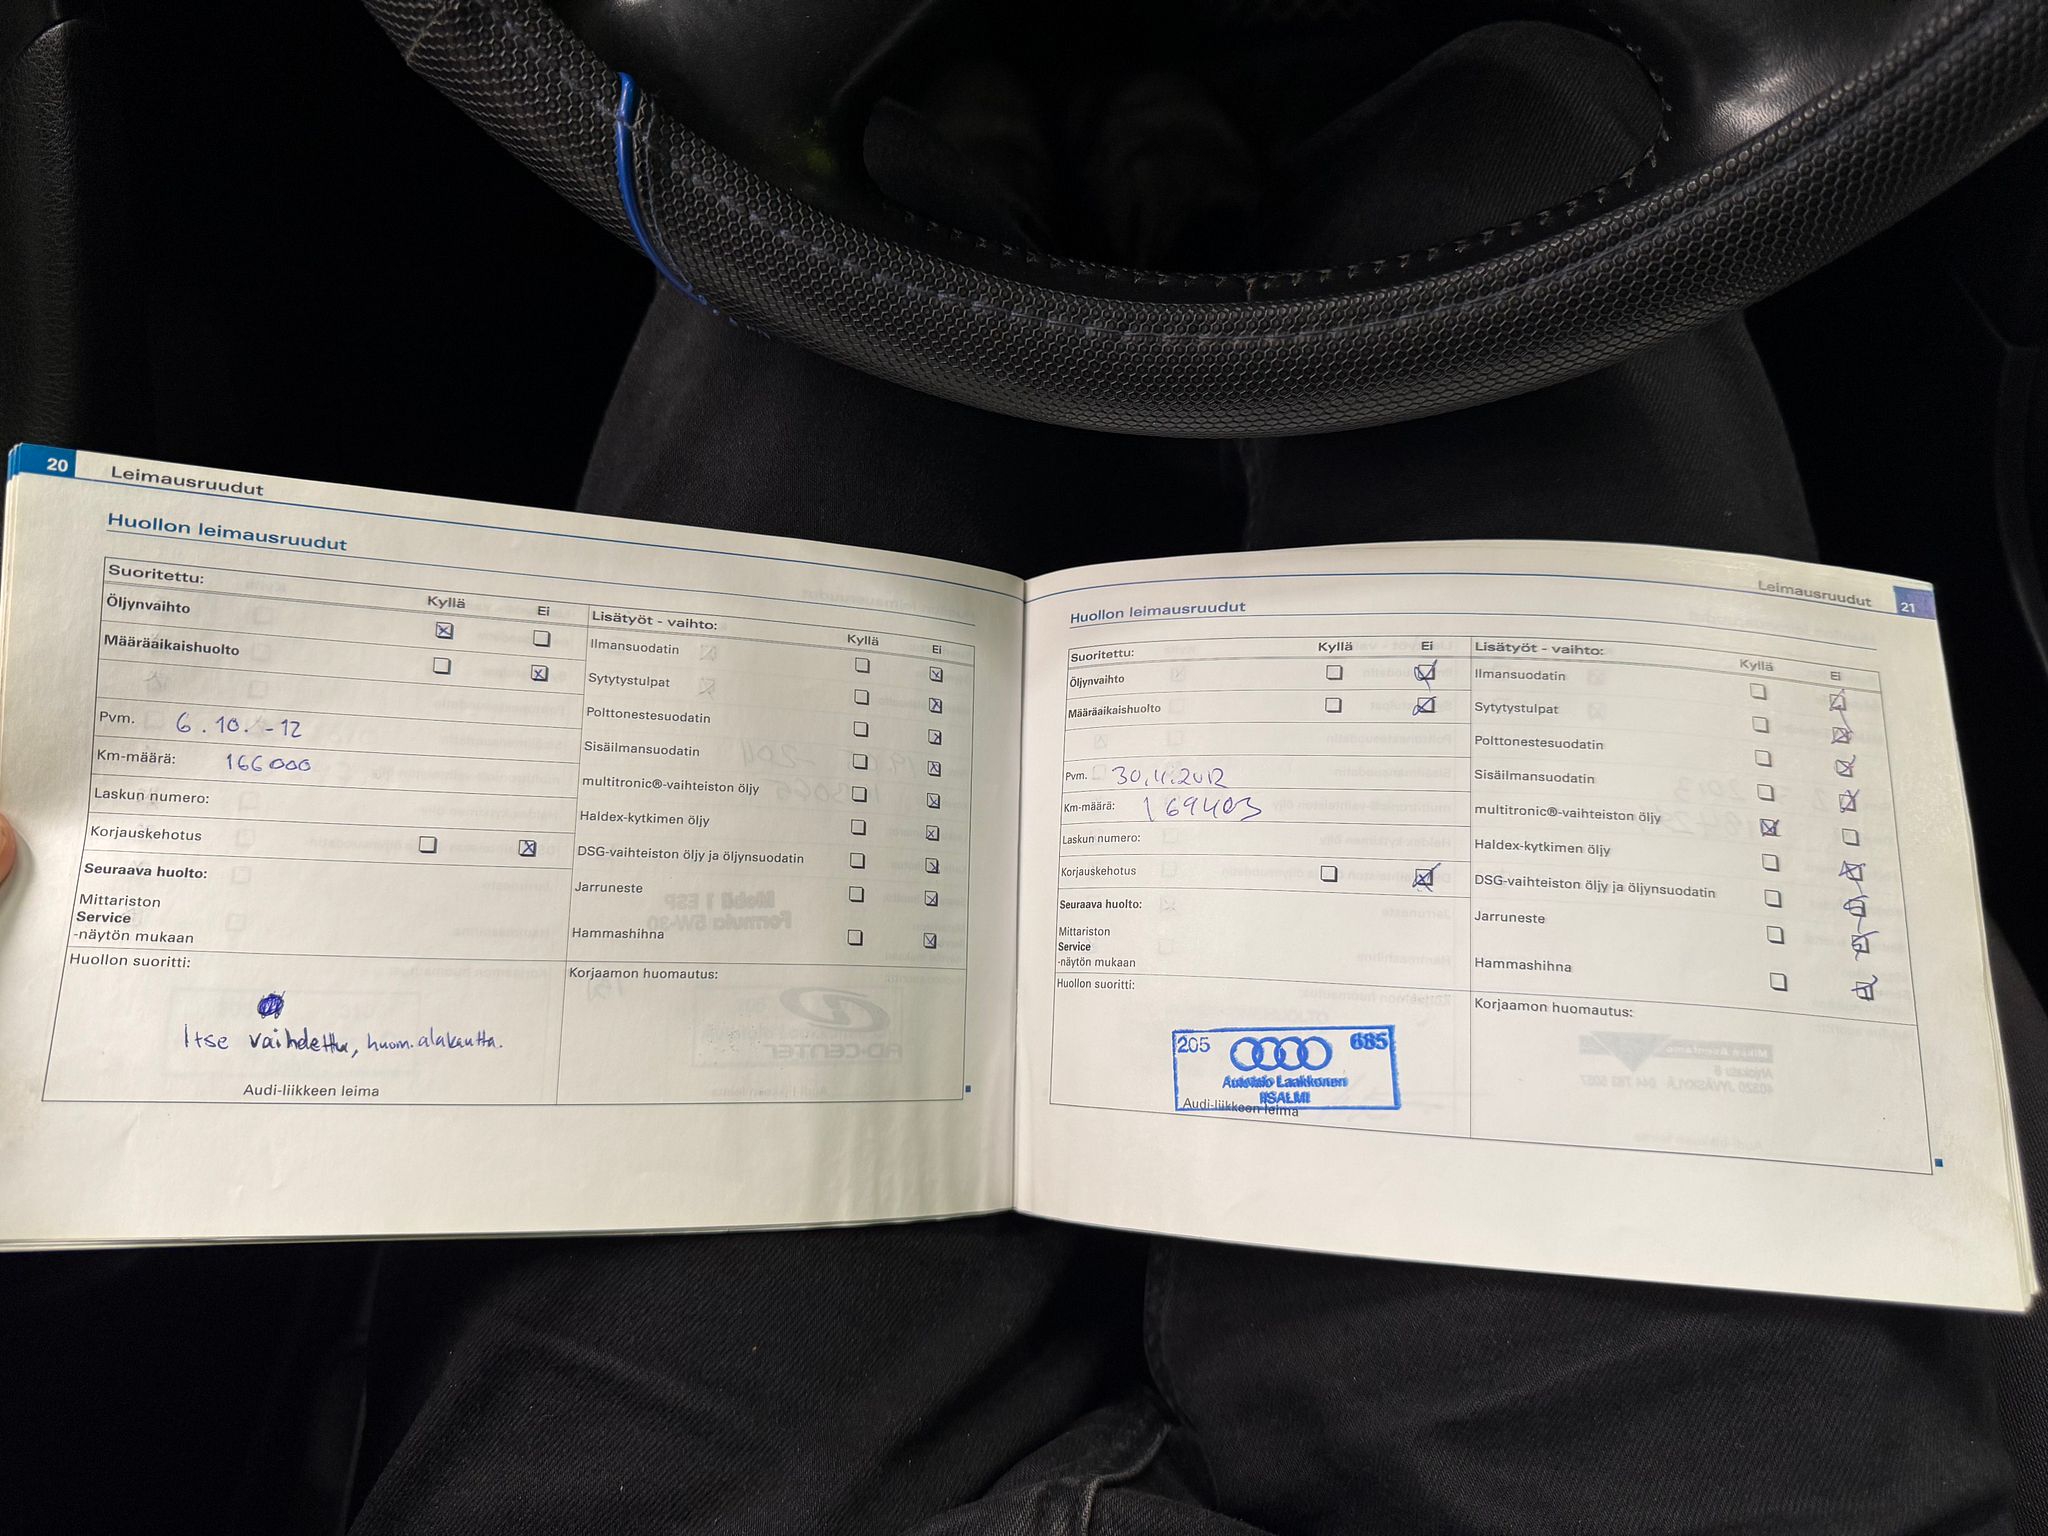 20
Leimausruudut
Huollon leimausruudut
Suoritettu:
Kyllä Ei
Öljynvaihto
Määräaikaishuolto
Pvm. 6.10.-12
Km-määrä: 166000
Laskun numero:
Korjauskehotus
Seuraava huolto:
Mittariston
Service
-näytön mukaan
Huollon suoritti:
Itse vaihdettu, huom. alakautta.
Audi-liikkeen leima
Lisätyöt - vaihto:
Kyllä Ei
Ilmansuodatin
Sytytystulpat
Polttonestesuodatin
Sisäilmansuodatin
multitronic®-vaihteiston öljy
Haldex-kytkimen öljy
DSG-vaihteiston öljy ja öljynsuodatin
Jarruneste
Hammashihna
Korjaamon huomautus:
Leimausruudut
21
Huollon leimausruudut
Suoritettu:
Kyllä Ei
Öljynvaihto
Määräaikaishuolto
Pvm.
Km-määrä: 169403
Laskun numero:
Korjauskehotus
Seuraava huolto:
Mittariston
Service
-näytön mukaan
Huollon suoritti:
205 685
Autotalo Laakkonen
IISALMI
Audi-liikkeen leima
Lisätyöt - vaihto:
Kyllä Ei
Ilmansuodatin
Sytytystulpat
Polttonestesuodatin
Sisäilmansuodatin
multitronic®-vaihteiston öljy
Haldex-kytkimen öljy
DSG-vaihteiston öljy ja öljynsuodatin
Jarruneste
Hammashihna
Korjaamon huomautus: